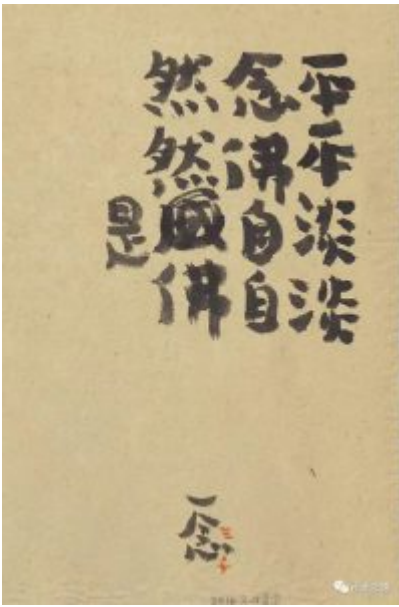 平平淡淡
念佛自自
然然佛
是
一念